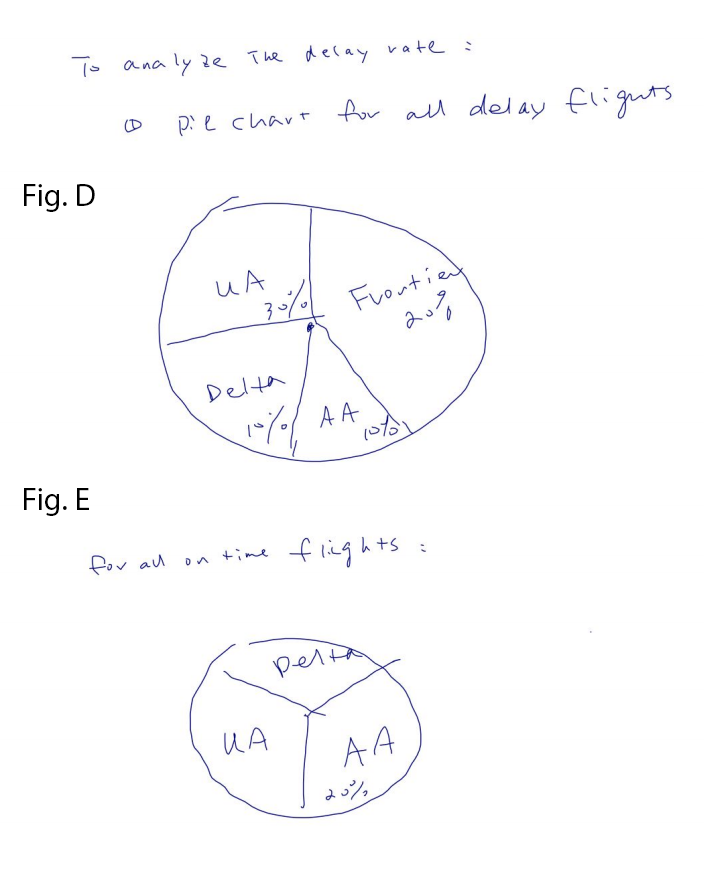 To analyze The delay rate :
① pie chart for all delay flights
Fig. D
UA
30%
Frontier
20%
Delta
10%
AA
10%
Fig. E
for all on time flights :
Delta
UA
AA
20%